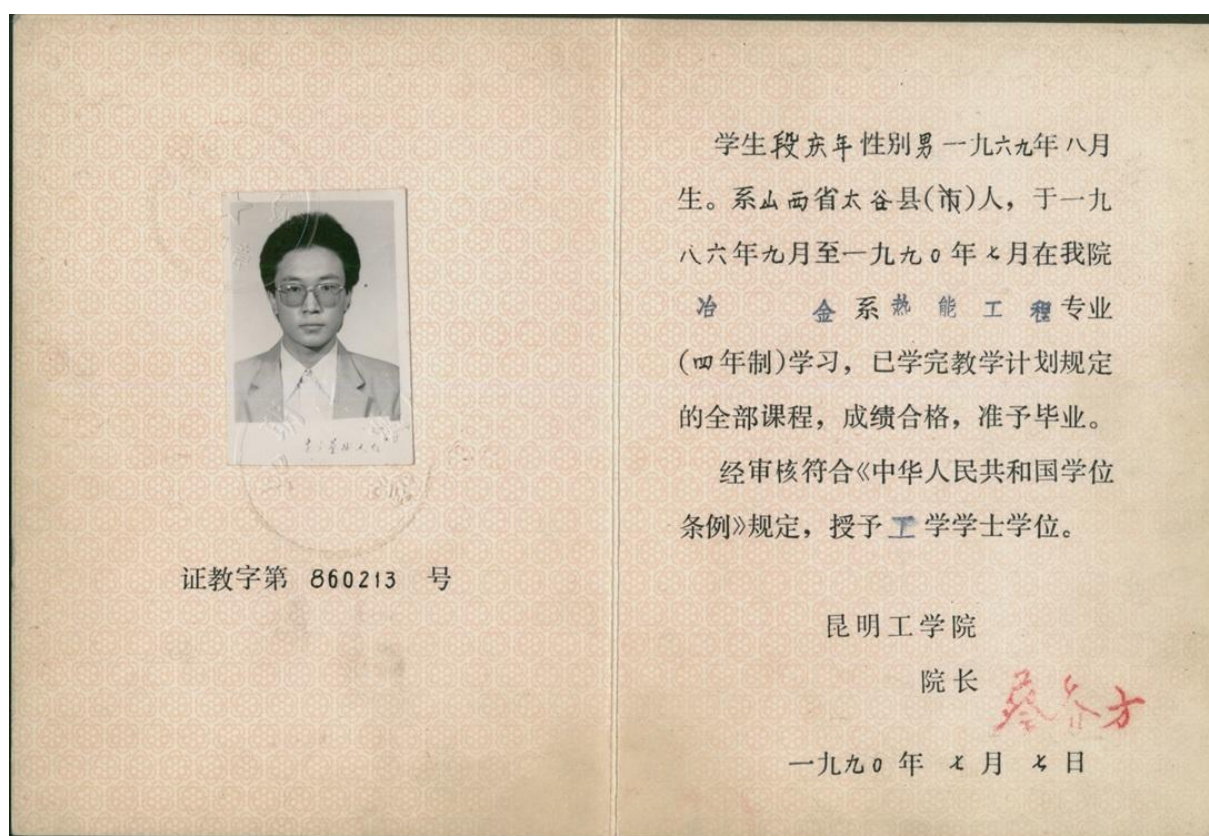 证教字第 860213 号
学生段庆年性别男一九六九年八月
生。系山西省太谷县(市)人，于一九
八六年九月至一九九0年七月在我院
冶金系热能工程专业
(四年制)学习，已学完教学计划规定
的全部课程，成绩合格，准予毕业。
经审核符合《中华人民共和国学位
条例》规定，授予工学学士学位。
昆明工学院
院长
一九九0年七月七日